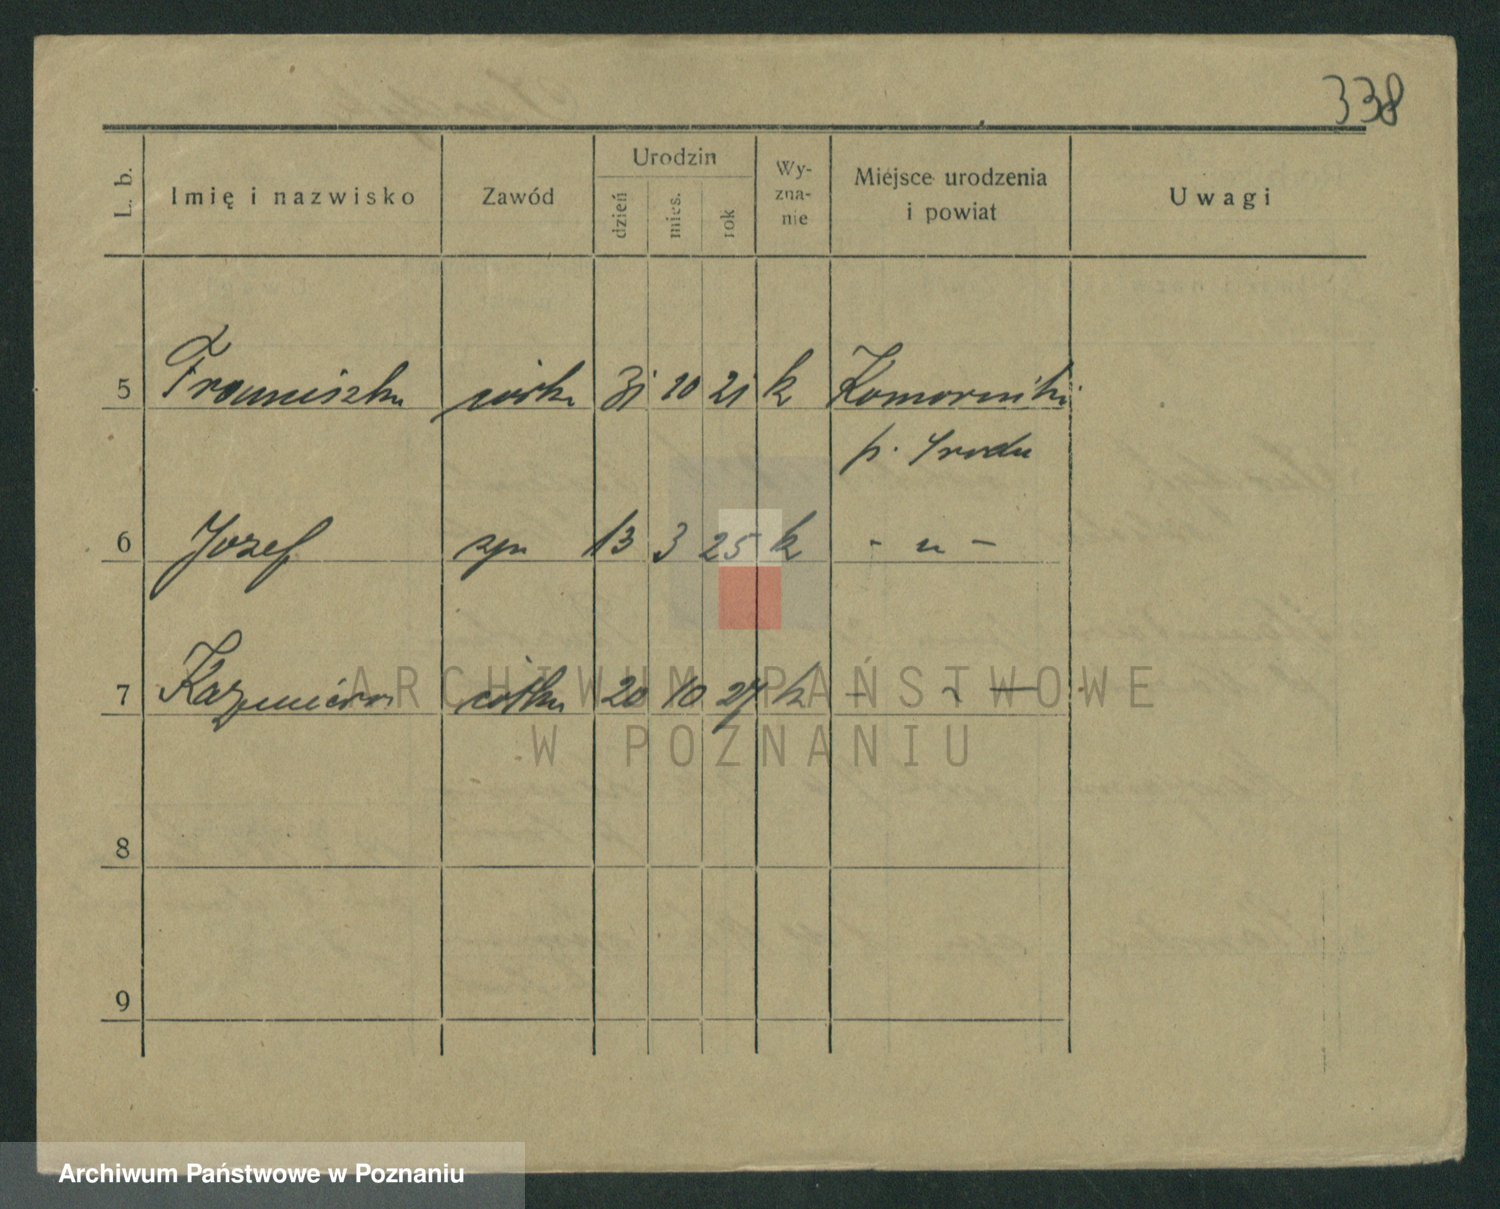 338
L. b. Imię i nazwisko Zawód Urodzin dzień mies. rok Wy-
zna-
nie Miejsce urodzenia
i powiat Uwagi
5 Franciszka córka 31 10 21 k Komorniki
p. Środa
6 Jozef syn 13 3 25 k - " -
7 Kazimiera córka 20 10 27 k - " -
8
9
ARCHIWUM PAŃSTWOWE
W POZNANIU
Archiwum Państwowe w Poznaniu